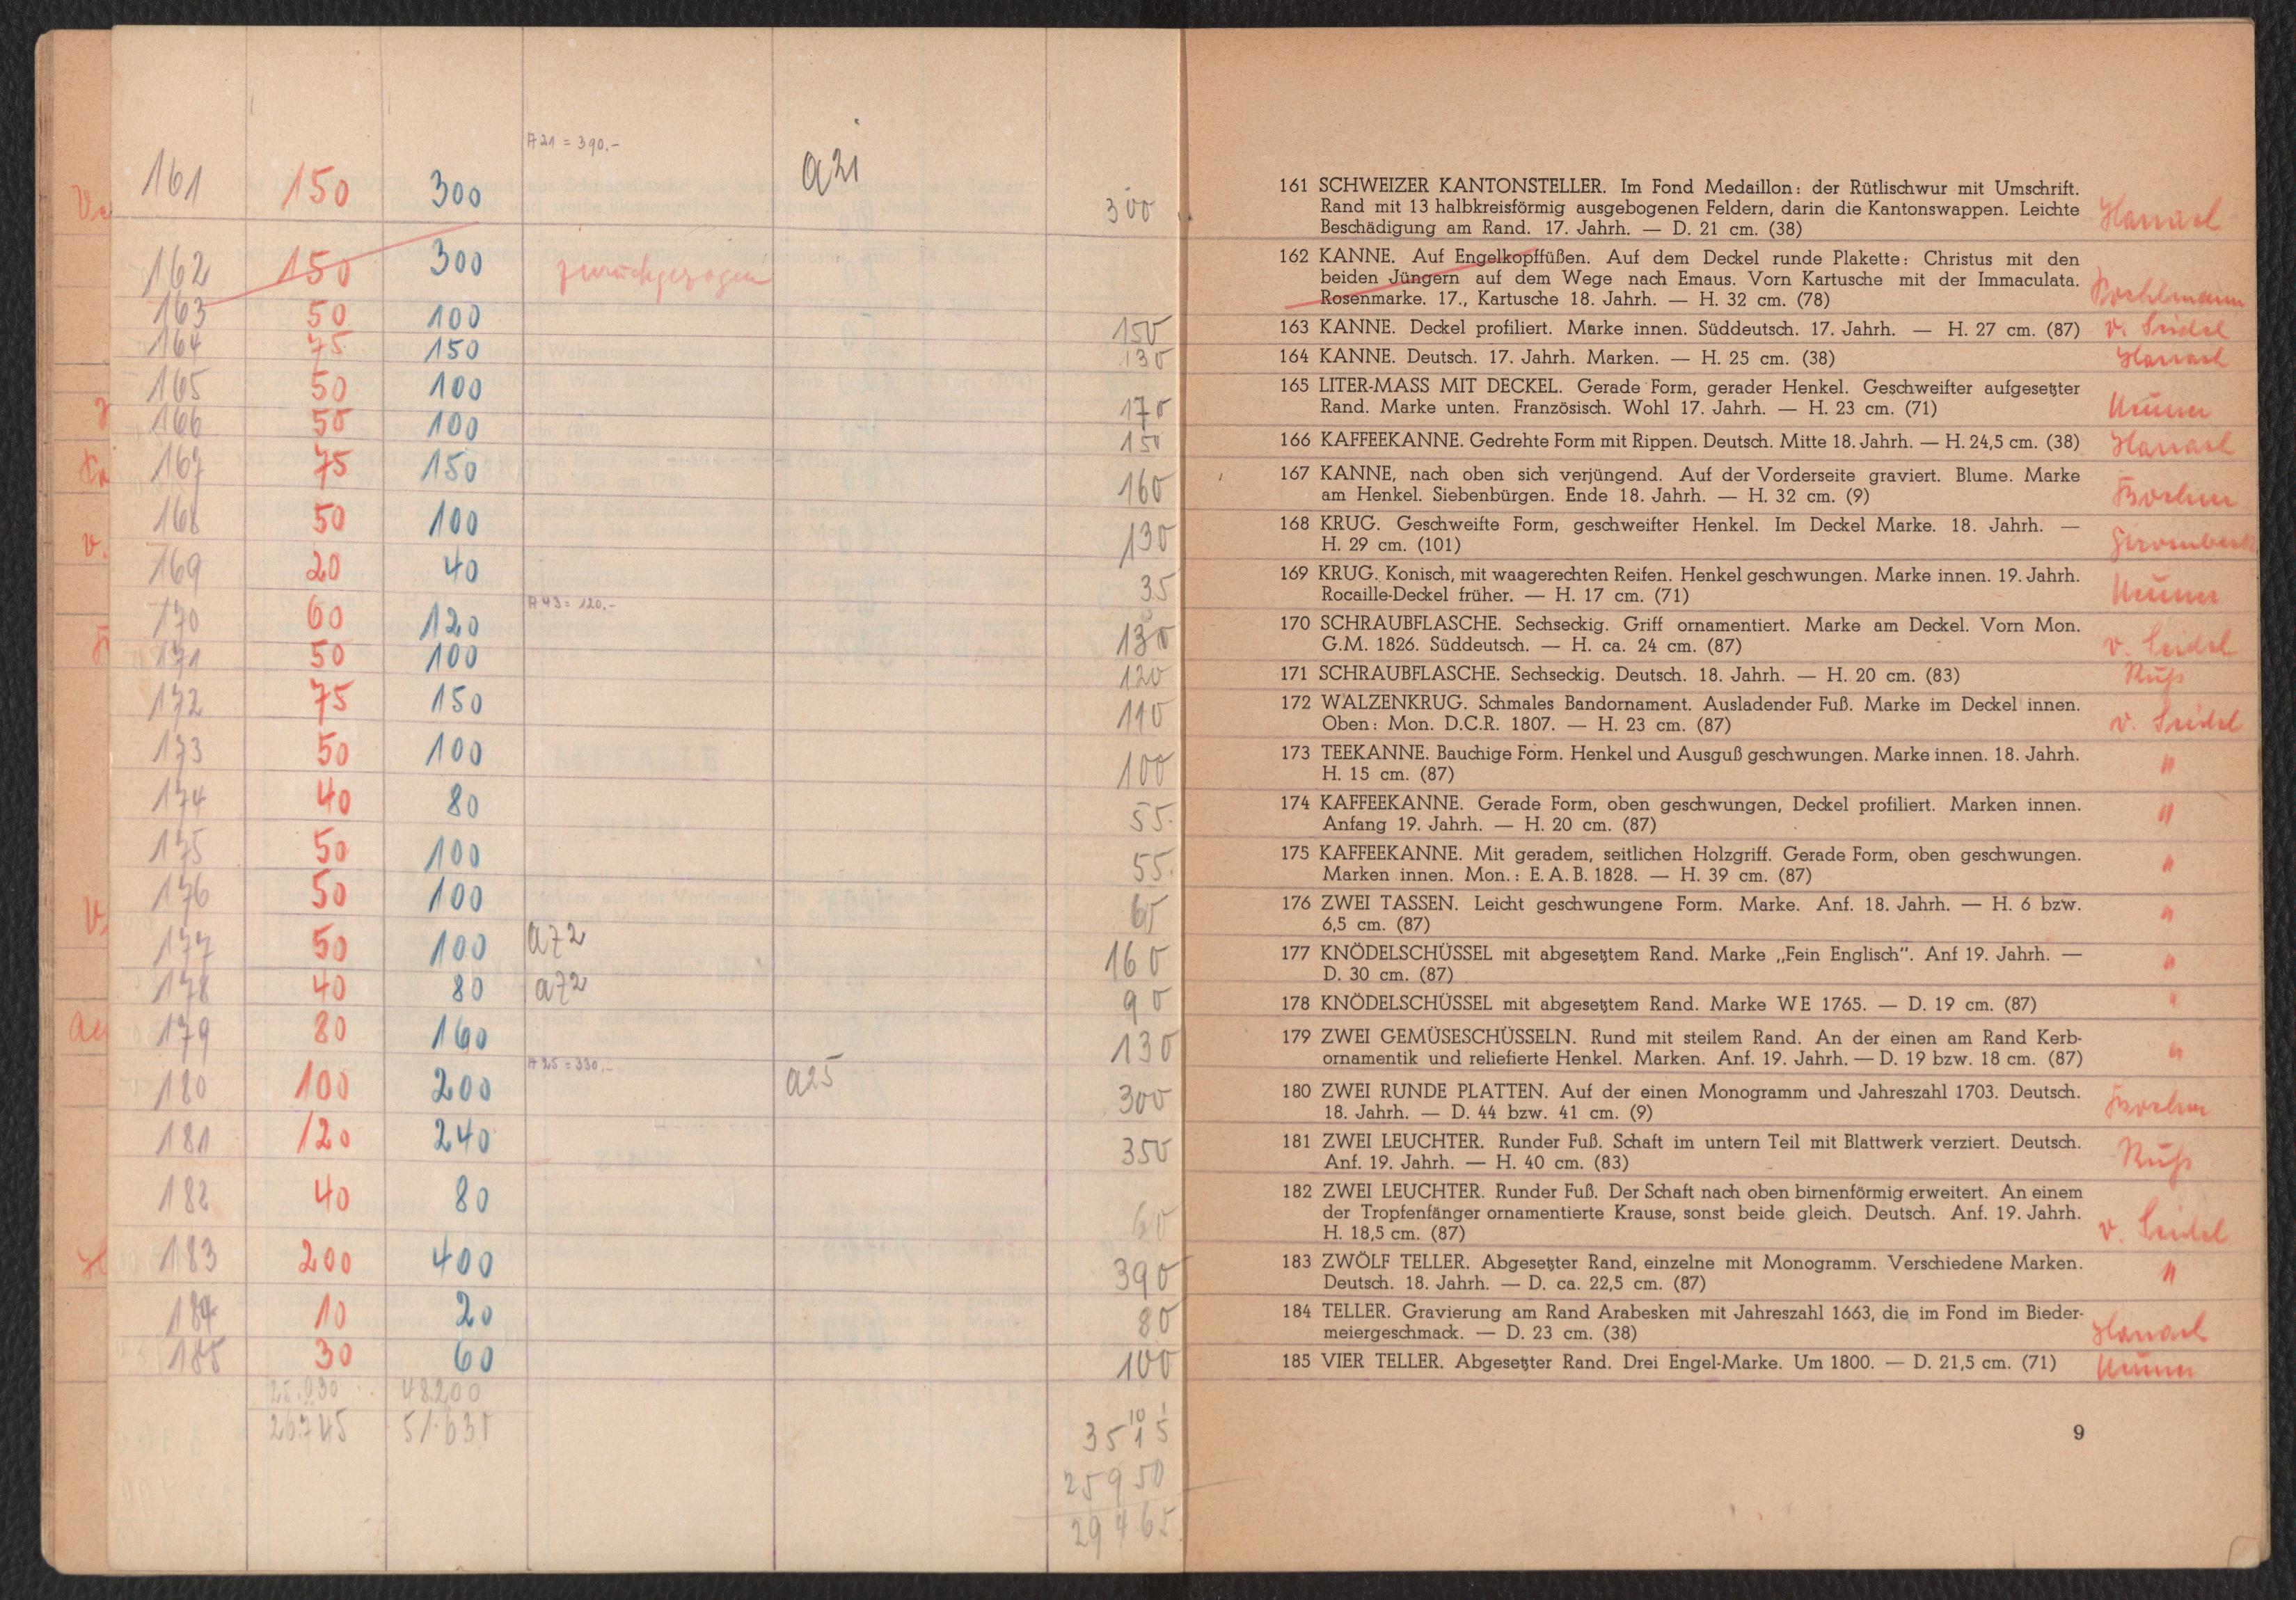 A21 = 390.-
161 150 300 a21 300
162 150 300 zurückgezogen
163 50 100 150
164 75 150 130
165 50 100 170
166 50 100 150
167 75 150 160
168 50 100 130
169 20 40 35
A43 = 120.-
170 60 120 130
171 50 100 120
172 75 150 110
173 50 100 100
174 40 80 55.
175 50 100 55.
176 50 100 65
177 50 100 a72 160
178 40 80 a72 90
179 80 160 130
A25 = 330.-
180 100 200 a25 300
181 120 240 350
182 40 80 60
183 200 400 390
184 10 20 80
185 30 60 100
48200
26745 51.630
3515
25950
29465
161 SCHWEIZER KANTONSTELLER. Im Fond Medaillon: der Rütlischwur mit Umschrift.
Rand mit 13 halbkreisförmig ausgebogenen Feldern, darin die Kantonswappen. Leichte
Beschädigung am Rand. 17. Jahrh. — D. 21 cm. (38)
162 KANNE. Auf Engelkopffüßen. Auf dem Deckel runde Plakette: Christus mit den
beiden Jüngern auf dem Wege nach Emaus. Vorn Kartusche mit der Immaculata.
Rosenmarke. 17., Kartusche 18. Jahrh. — H. 32 cm. (78)
163 KANNE. Deckel profiliert. Marke innen. Süddeutsch. 17. Jahrh. — H. 27 cm. (87) v. Seidel
164 KANNE. Deutsch. 17. Jahrh. Marken. — H. 25 cm. (38)
165 LITER-MASS MIT DECKEL. Gerade Form, gerader Henkel. Geschweifter aufgesetzter
Rand. Marke unten. Französisch. Wohl 17. Jahrh. — H. 23 cm. (71)
166 KAFFEEKANNE. Gedrehte Form mit Rippen. Deutsch. Mitte 18. Jahrh. — H. 24,5 cm. (38)
167 KANNE, nach oben sich verjüngend. Auf der Vorderseite graviert. Blume. Marke
am Henkel. Siebenbürgen. Ende 18. Jahrh. — H. 32 cm. (9)
168 KRUG. Geschweifte Form, geschweifter Henkel. Im Deckel Marke. 18. Jahrh. —
H. 29 cm. (101)
169 KRUG. Konisch, mit waagerechten Reifen. Henkel geschwungen. Marke innen. 19. Jahrh.
Rocaille-Deckel früher. — H. 17 cm. (71)
170 SCHRAUBFLASCHE. Sechseckig. Griff ornamentiert. Marke am Deckel. Vorn Mon.
G.M. 1826. Süddeutsch. — H. ca. 24 cm. (87) v. Seidel
171 SCHRAUBFLASCHE. Sechseckig. Deutsch. 18. Jahrh. — H. 20 cm. (83) Ruß
172 WALZENKRUG. Schmales Bandornament. Ausladender Fuß. Marke im Deckel innen.
Oben: Mon. D.C.R. 1807. — H. 23 cm. (87) v. Seidel
173 TEEKANNE. Bauchige Form. Henkel und Ausguß geschwungen. Marke innen. 18. Jahrh. "
H. 15 cm. (87)
174 KAFFEEKANNE. Gerade Form, oben geschwungen, Deckel profiliert. Marken innen. "
Anfang 19. Jahrh. — H. 20 cm. (87)
175 KAFFEEKANNE. Mit geradem, seitlichen Holzgriff. Gerade Form, oben geschwungen. "
Marken innen. Mon.: E. A. B. 1828. — H. 39 cm. (87)
176 ZWEI TASSEN. Leicht geschwungene Form. Marke. Anf. 18. Jahrh. — H. 6 bzw. "
6,5 cm. (87)
177 KNÖDELSCHÜSSEL mit abgesetztem Rand. Marke „Fein Englisch". Anf 19. Jahrh. — "
D. 30 cm. (87)
178 KNÖDELSCHÜSSEL mit abgesetztem Rand. Marke WE 1765. — D. 19 cm. (87) "
179 ZWEI GEMÜSESCHÜSSELN. Rund mit steilem Rand. An der einen am Rand Kerb-
ornamentik und reliefierte Henkel. Marken. Anf. 19. Jahrh. — D. 19 bzw. 18 cm. (87) "
180 ZWEI RUNDE PLATTEN. Auf der einen Monogramm und Jahreszahl 1703. Deutsch.
18. Jahrh. — D. 44 bzw. 41 cm. (9)
181 ZWEI LEUCHTER. Runder Fuß. Schaft im untern Teil mit Blattwerk verziert. Deutsch.
Anf. 19. Jahrh. — H. 40 cm. (83) Ruß
182 ZWEI LEUCHTER. Runder Fuß. Der Schaft nach oben birnenförmig erweitert. An einem
der Tropfenfänger ornamentierte Krause, sonst beide gleich. Deutsch. Anf. 19. Jahrh.
H. 18,5 cm. (87) v. Seidel
183 ZWÖLF TELLER. Abgesetzter Rand, einzelne mit Monogramm. Verschiedene Marken. "
Deutsch. 18. Jahrh. — D. ca. 22,5 cm. (87)
184 TELLER. Gravierung am Rand Arabesken mit Jahreszahl 1663, die im Fond im Bieder-
meiergeschmack. — D. 23 cm. (38)
185 VIER TELLER. Abgesetzter Rand. Drei Engel-Marke. Um 1800. — D. 21,5 cm. (71)
9